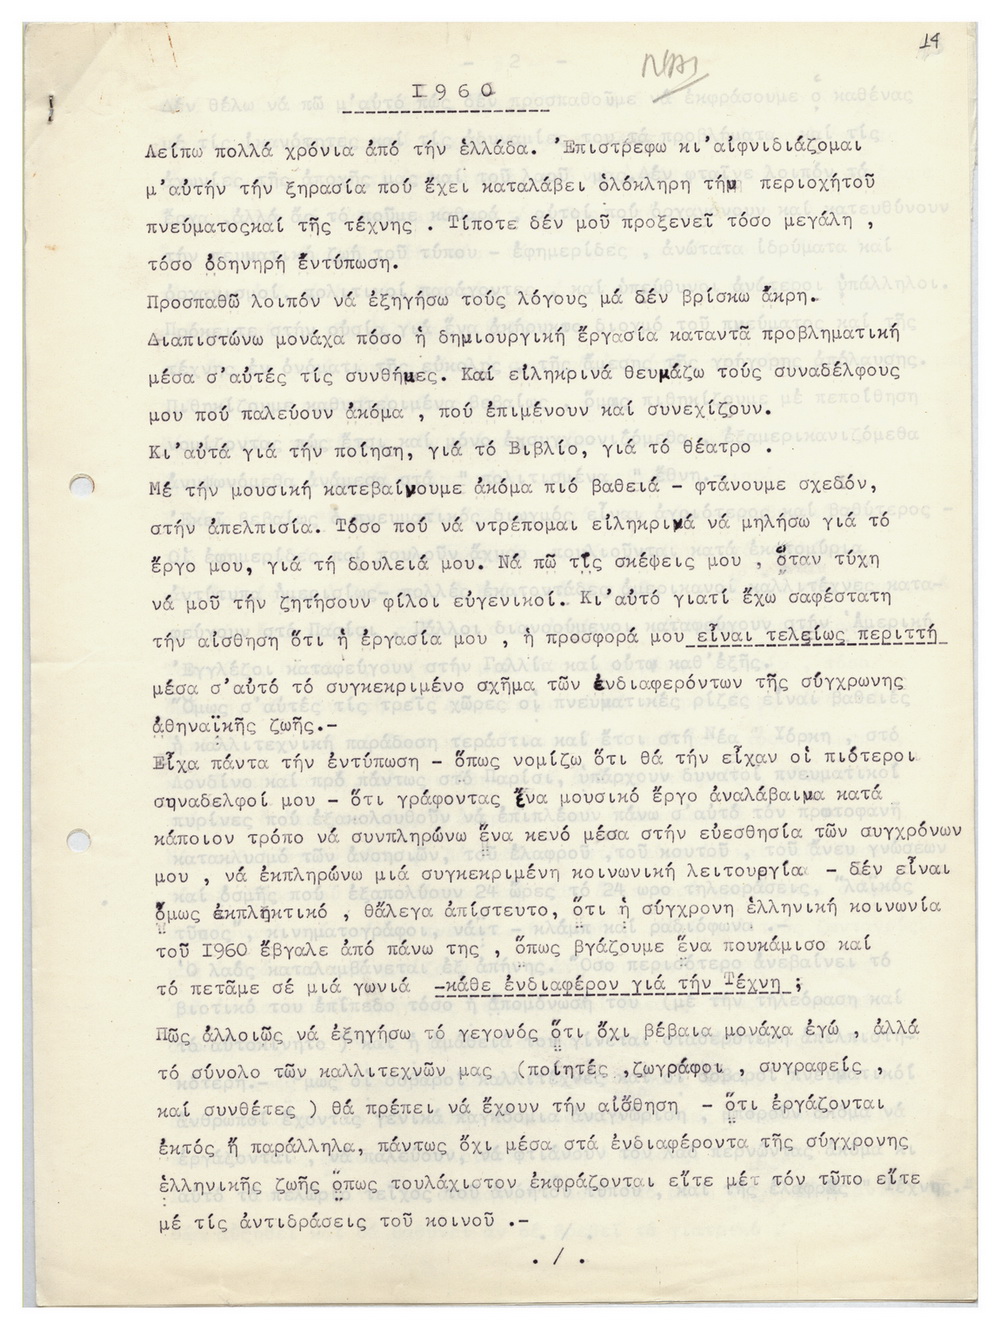 14
ΝΑΙ
I960
Λείπω πολλά χρόνια ἀπό τήν ἑλλάδα. Ἐπιστρεφω κι'αἰφνιδιάζομαι
μ'αὐτήν τήν ξηρασία πού ἔχει καταλάβει ὁλόκληρη τήν περιοχήτοῦ
πνεύματοςκαί τῆς τέχνης . Τίποτε δέν μοῦ προξενεῖ τόσο μεγάλη ,
τόσο ὀδηνηρή ἐντύπωση.
Προσπαθῶ λοιπόν νά ἐξηγήσω τούς λόγους μά δέν βρίσκω ἄκρη.
Διαπιστώνω μονάχα πόσο ἡ δημιουργική ἔργασία καταντᾶ προβληματική
μέσα σ'αὐτές τίς συνθήκες. Καί εἰληκρινά θευμάζω τούς συναδέλφους
μου πού παλεύουν ἀκόμα , πού ἐπιμένουν καί συνεχίζουν.
Κι'αὐτά γιά τήν ποίηση, γιά τό Βιβλίο, γιά τό θέατρο .
Μέ τήν μουσική κατεβαίνουμε ἀκόμα πιό βαθειά - φτάνουμε σχεδόν,
στήν ἀπελπισία. Τόσο πού νά ντρέπομαι εἰληκρινά νά μηλήσω γιά τό
ἔργο μου, γιά τή δουλειά μου. Νά πῶ τίς σκέψεις μου , ὅταν τύχη
νά μοῦ τήν ζητήσουν φίλοι εὐγενικοί. Κι'αὐτό γιατί ἔχω σαφέστατη
τήν αἴσθηση ὅτι ἡ ἐργασία μου , ἡ προσφορά μου εἶναι τελείως περιττή
μέσα σ'αὐτό τό συγκεκριμένο σχῆμα τῶν ἐνδιαφερόντων τῆς σύγχρωνης
ἀθηναϊκῆς ζωῆς.-
Εἶχα πάντα τήν ἐντύπωση - ὅπως νομίζω ὅτι θά τήν εἶχαν οἱ πιότεροι
συναδελφοί μου - ὅτι γράφοντας ἕνα μουσικό ἔργο ἀναλάβαινα κατά
κάποιον τρόπο νά συνπληρώνω ἕνα κενό μέσα στήν εὐεσθησία τῶν συγχρόνων
μου , νά ἐκπληρώνω μιά συγκεκριμένη κοινωνική λειτουργία - δέν εἶναι
ὅμως ἐκπληκτικό , θἄλεγα ἀπίστευτο, ὅτι ἡ σύγχρονη ἑλληνική κοινωνία
τοῦ I960 ἔβγαλε ἀπό πάνω της , ὅπως βγάζουμε ἕνα πουκάμισο καί
τό πετᾶμε σέ μιά γωνιά -κάθε ἐνδιαφέρον γιά τήν Τέχνη ;
Πῶς ἀλλοιῶς νά ἐξηγήσω τό γεγονός ὅτι ὄχι βέβαια μονάχα ἐγώ , ἀλλά
τό σύνολο τῶν καλλιτεχνῶν μας (ποίητές ,ζωγράφοι , συγραφείς ,
καί συνθέτες ) θά πρέπει νά ἔχουν τήν αἴσθηση - ὅτι ἐργάζονται
ἐκτός ἤ παράλληλα, πάντως ὄχι μέσα στά ἐνδιαφέροντα τῆς σύγχρονης
ἑλληνικῆς ζωῆς ὅπως τουλάχιστον ἐκφράζονται εἴτε μέ τόν τῦπο εἴτε
μέ τίς ἀντιδράσεις τοῦ κοινοῦ .-
. / .